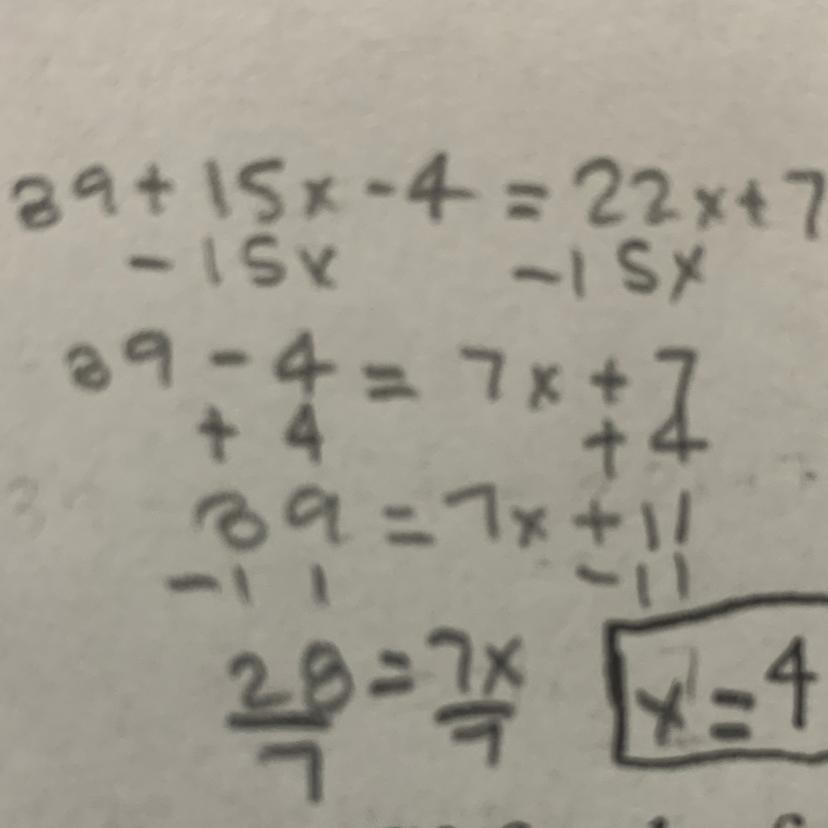 39 + 15x - 4 = 22x + 7
- 15x - 15x
39 - 4 = 7x + 7
+ 4 + 4
39 = 7x + 11
- 11 - 11
28 = 7x
7 7
x = 4